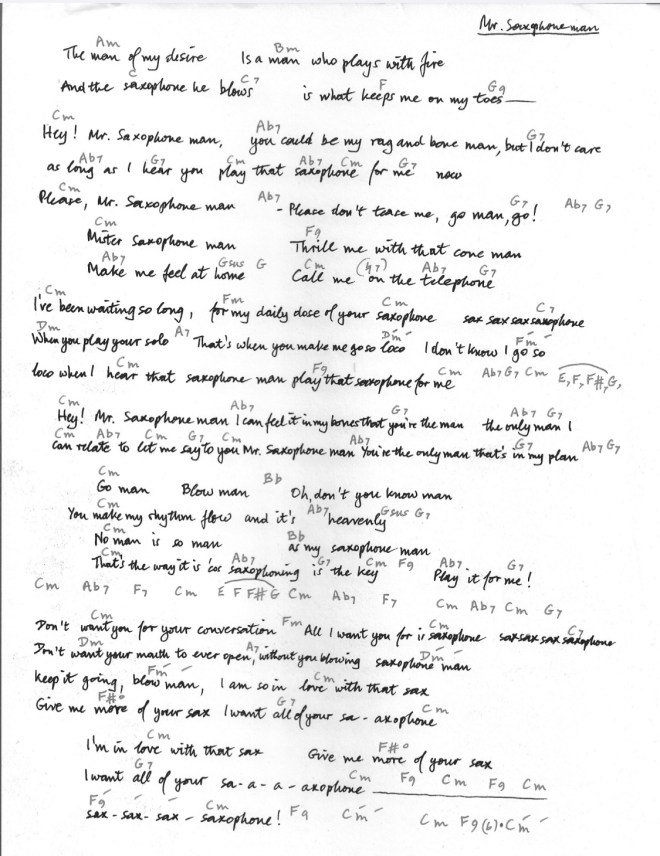 Mr. Saxophone man
Am Bm
The man of my desire Is a man who plays with fire
C C7 F G9
And the saxophone he blows is what keeps me on my toes
Cm Ab7 G7
Hey! Mr. Saxophone man, you could be my rag and bone man, but I don't care
Ab7 G7 Cm Ab7 Cm G7
as long as I hear you play that saxophone for me now
Cm Ab7 G7 Ab7 G7
Please, Mr. Saxophone man - Please don't tease me, go man, go!
Cm F9
Mister Saxophone man Thrill me with that cone man
Ab7 Gsus G Cm Ab7 G7
Make me feel at home Call me on the telephone
Cm Fm Cm C7
I've been waiting so long, for my daily dose of your saxophone sax sax sax saxophone
Dm A7 Dm Fm
When you play your solo That's when you make me go so loco I don't know I go so
Cm F9 Cm Ab7 G7 Cm E, F, F#, G,
loco when I hear that saxophone man play that saxophone for me
Cm Ab7 G7 Ab7 G7
Hey! Mr. Saxophone man I can feel it in my bones that you're the man the only man I
Cm Ab7 Cm G7 Cm Ab7 G7 Ab7 G7
can relate to let me say to you Mr. Saxophone man You're the only man that's in my plan
Cm Bb
Go man Blow man Oh, don't you know man
Cm Ab7 Gsus G7
You make my rhythm flow and it's heavenly
Cm Bb
No man is so man as my saxophone man
Cm Ab7 G7 Cm F9 Ab7 G7
That's the way it is 'cos saxophoning is the key Play it for me!
Cm Ab7 F7 Cm E F F# G Cm Ab7 F7 Cm Ab7 Cm G7
Cm Fm Cm C7
Don't want you for your conversation All I want you for is saxophone sax sax sax saxophone
Dm A7 Dm
Don't want your mouth to ever open, without you blowing saxophone man
Fm Cm
keep it going, blow man, I am so in love with that sax
F#° G7 Cm
Give me more of your sax I want all of your sa - axophone
Cm F#°
I'm in love with that sax Give me more of your sax
G7 Cm F9 Cm F9 Cm
I want all of your sa - a - a - axophone
F9 Cm F9 Cm Cm F9(6) • Cm
sax - sax - sax - saxophone!